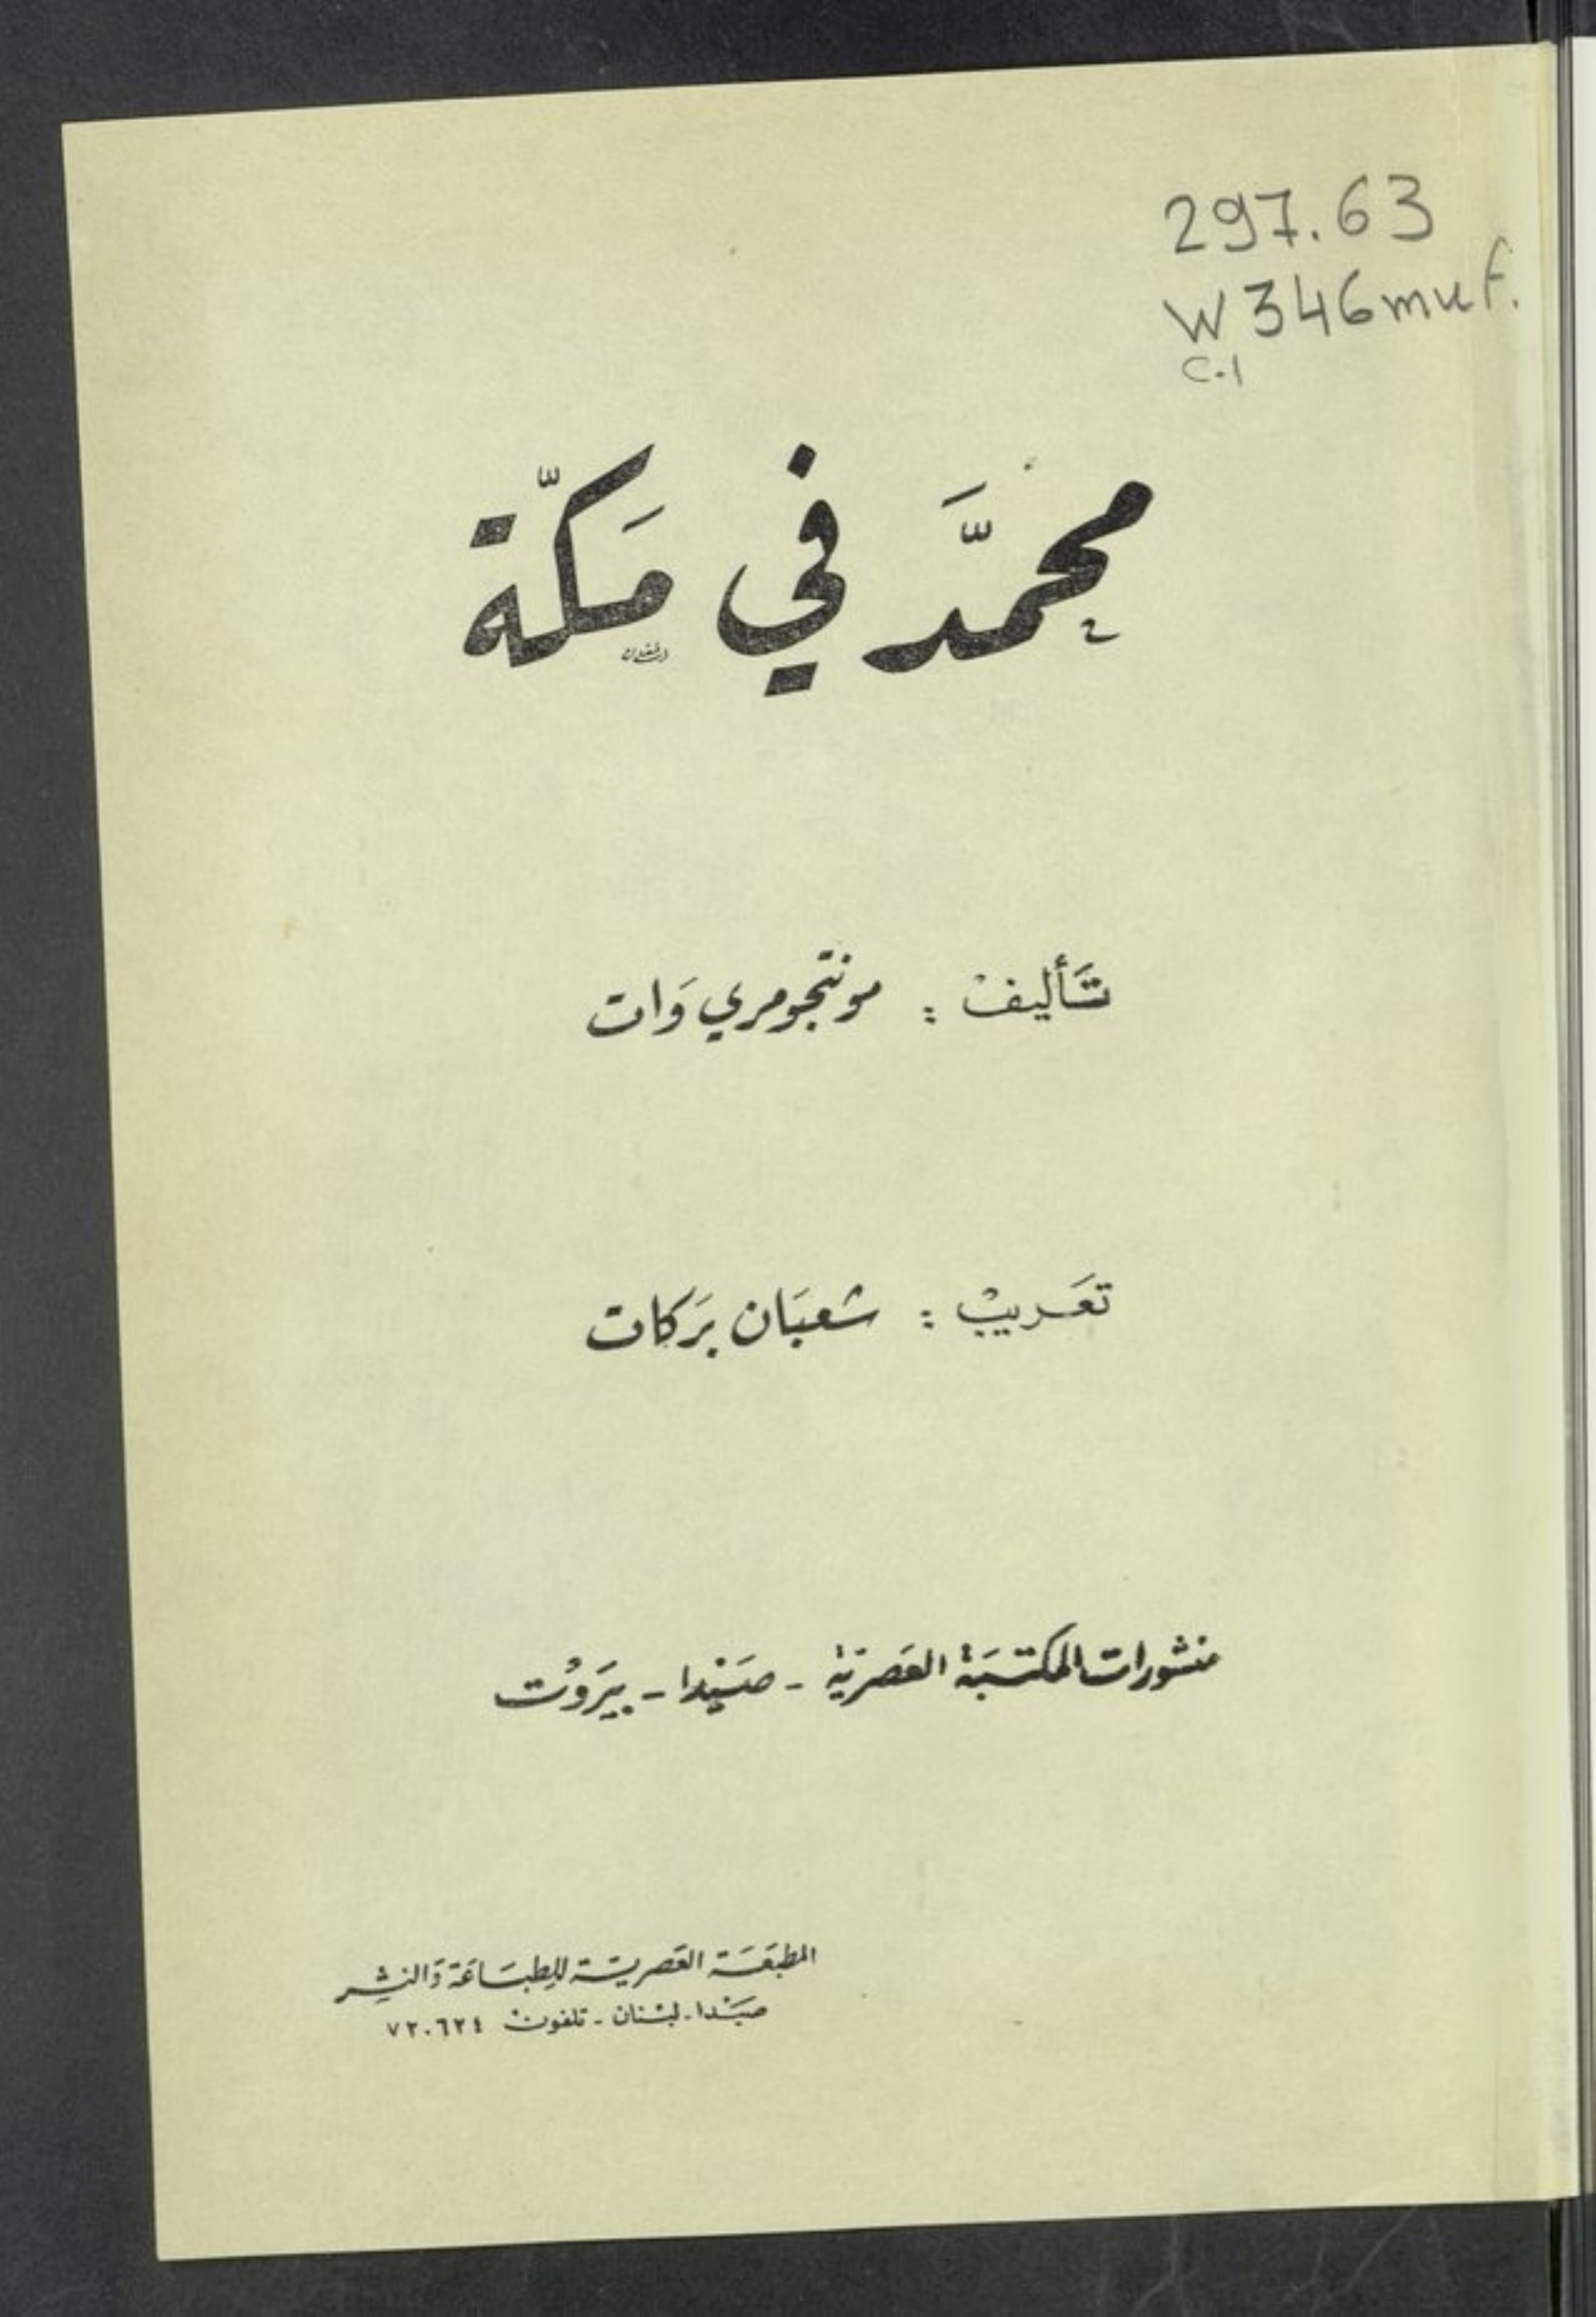 297.63
W346muf.
C.1
محمَّد في مَكّة
تَأليف : مونتجومري وَات
تعَريب : شعبَان بَركات
منشورات المكتبَة العَصريّة - صَيْدا - بَيروُت
المطبَعَة العَصريّة للِطبَاعَة وَالنشِر
صَيْدا - لبْنان - تلفون ٧٢٠٦٢٤